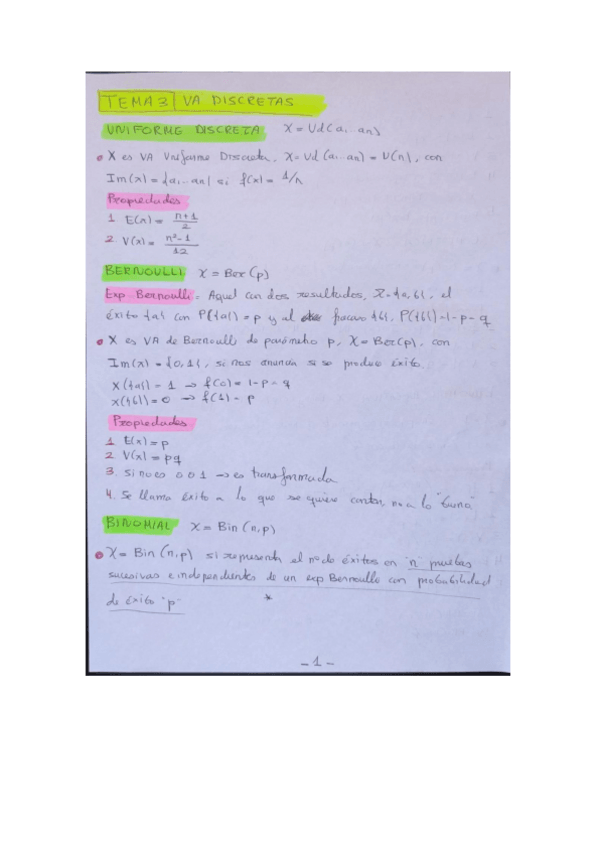 TEMA 3 VA DISCRETAS
UNIFORME DISCRETA X = Ud(a,..an)
• X es VA Uniforme Discreta, X = Ud (a,.. an) = U(n), con
Im(x) = {a,.. an} si f(x) = 1/n
Propiedades
1. E(x) = n+1/2
2. V(x) = n²-1/12
BERNOULLI X = Ber (p)
Exp Bernoulli = Aquel con dos resultados, = {a,b}, el
éxito {a} con P({a}) = p y al fracaso {b}, P({b}) = 1-p = q
• X es VA de Bernoulli de parámetro p, X = Ber(p), con
Im(x) = {0,1}, si nos anuncia si se produce éxito.
X({a}) = 1 → f(0) = 1-p = q
X({b}) = 0 → f(1) = p
Propiedades
1 E(x) = p
2 V(x) = pq
3. Si no es 0 o 1 → es transformada
4. Se llama éxito a lo que se quiere contar, no a lo "bueno".
BINOMIAL X = Bin (n,p)
• X = Bin (n,p) si representa el nº de éxitos en "n" pruebas
sucesivas e independientes de un exp Bernoulli con probabilidad
de éxito "p" *
- 1 -